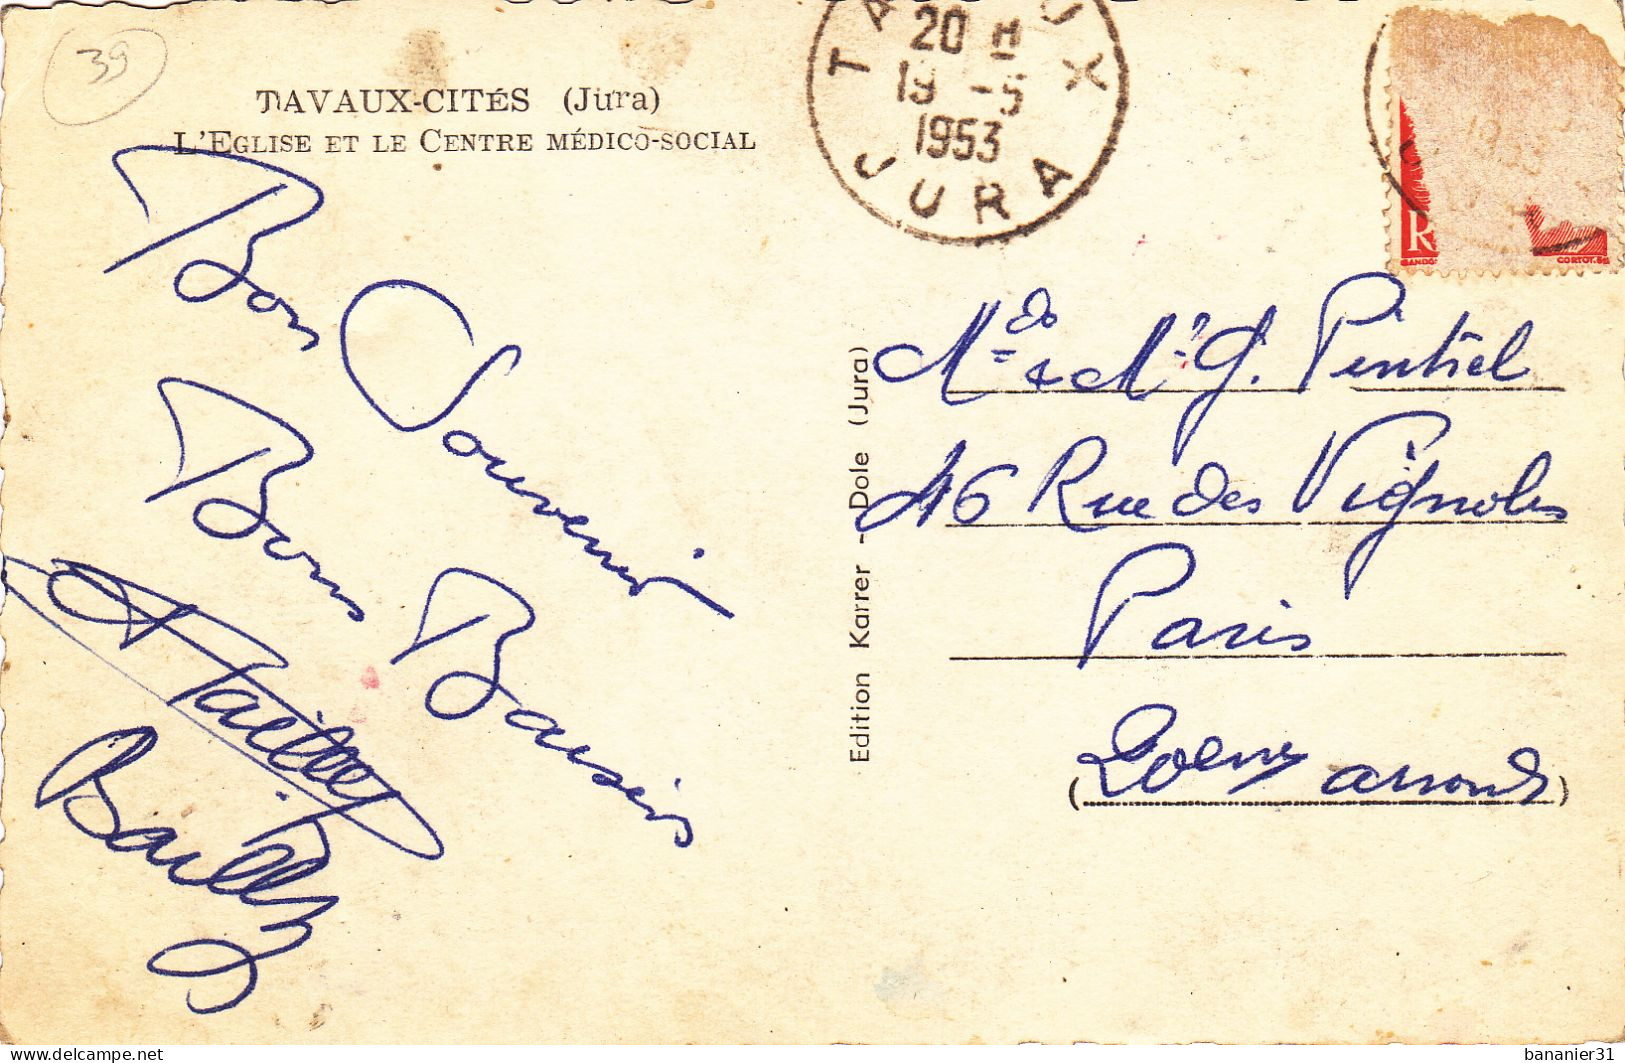 39
TAVAUX-CITÉS (Jura)
L'EGLISE ET LE CENTRE MÉDICO-SOCIAL
Bon Souvenir
Bons Baisers
Bailly
TA UX
20 H
19 -5
1953
JURA
R
GANDON
CORTOT.SC
Edition Karrer - Dole (Jura)
Mde & Mr G. Pentiel
46 Rue des Vignoles
Paris
(20em arrond)
delcampe.net
bananier31